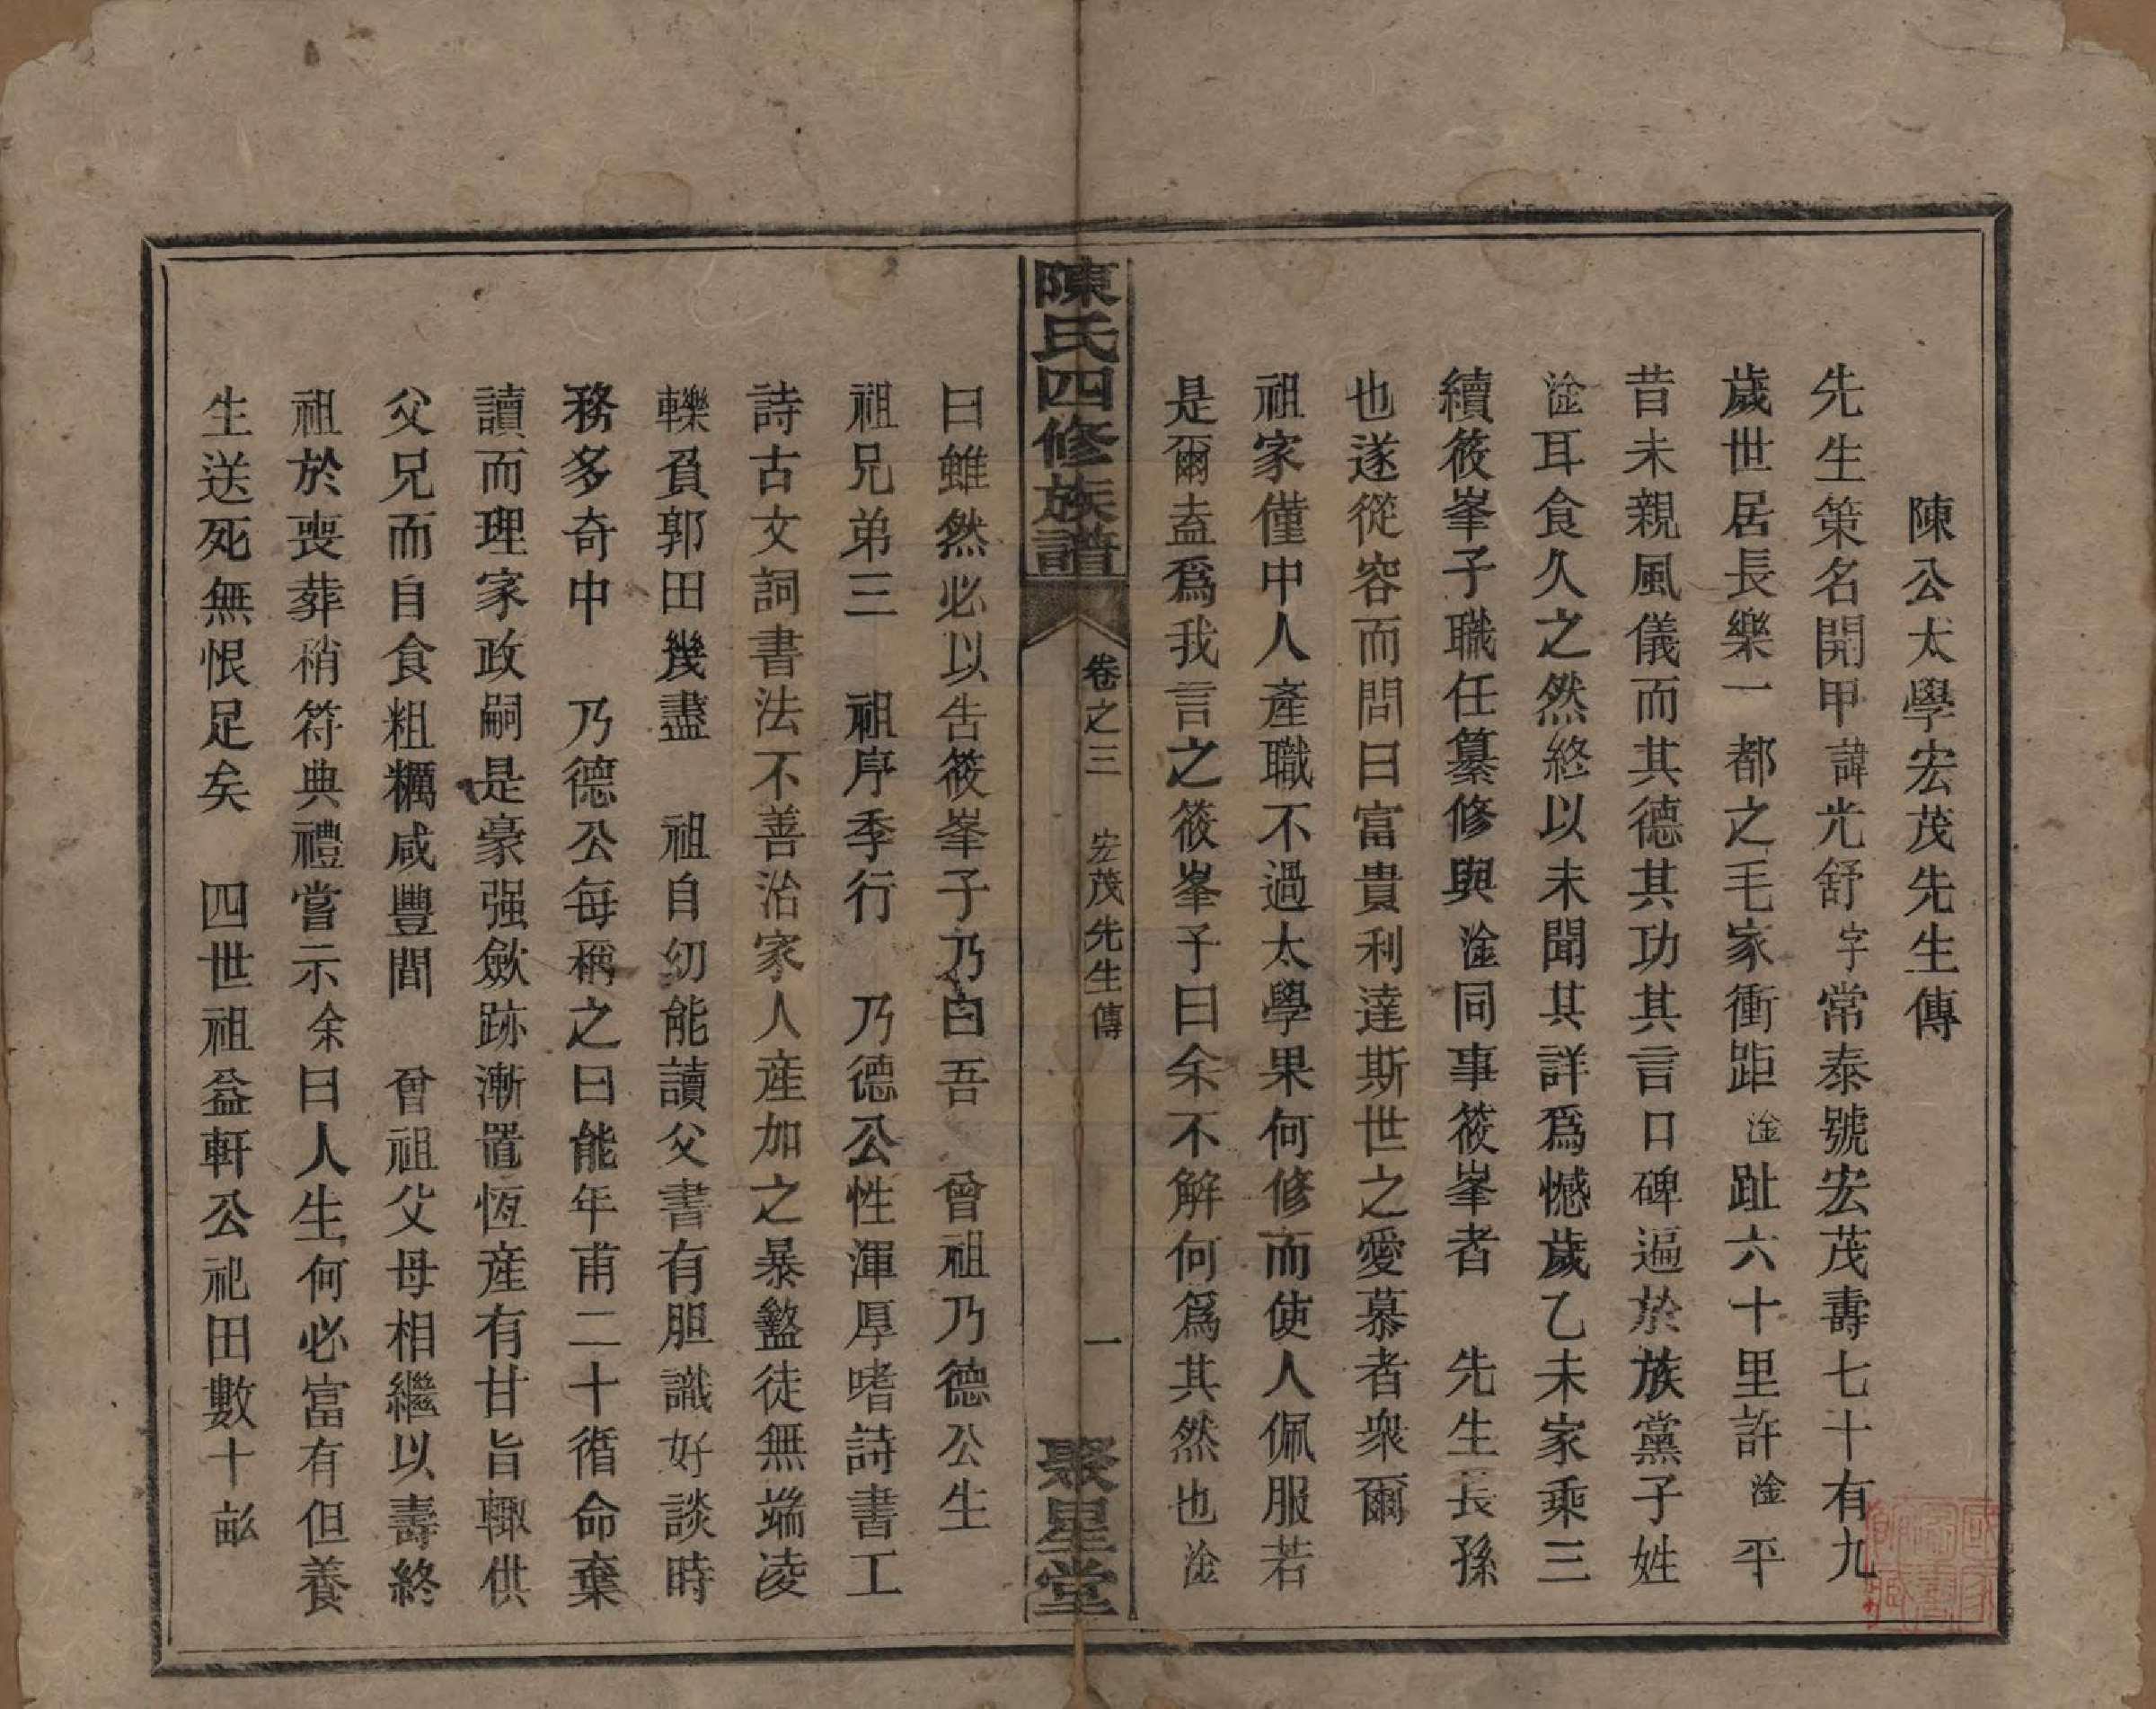 陳公太學宏茂先生傳
先生策名開甲諱光舒字常泰號宏茂壽七十有九
歲世居長樂一都之毛家衝距淦趾六十里許淦平
昔未親風儀而其德其功其言口碑遍於族黨子姓
淦耳食久之然終以未聞其詳爲憾歲乙未家乘三
續筱峯子職任纂修與淦同事筱峯者　先生長孫
也遂從容而問曰富貴利達斯世之愛慕者衆爾
祖家僅中人產職不過太學果何修而使人佩服若
是爾盍爲我言之筱峯子曰余不解何爲其然也淦
陳氏四修族譜
卷之三　宏茂先生傳
一
聚星堂
曰雖然必以告筱峯子乃白吾　曾祖乃德公生
祖兄弟三　祖序季行　乃德公性渾厚嗜詩書工
詩古文詞書法不善治家人産加之暴盭徒無端凌
轢負郭田幾盡　祖自幼能讀父書有胆識好談時
務多奇中　乃德公每稱之曰能年甫二十循命棄
讀而理家政嗣是豪强歛跡漸置恆産有甘旨輙供
父兄而自食粗糲咸豐間　曾祖父母相繼以壽終
祖於喪葬稍符典禮嘗示余曰人生何必富有但養
生送死無恨足矣　四世祖益軒公祀田數十畝